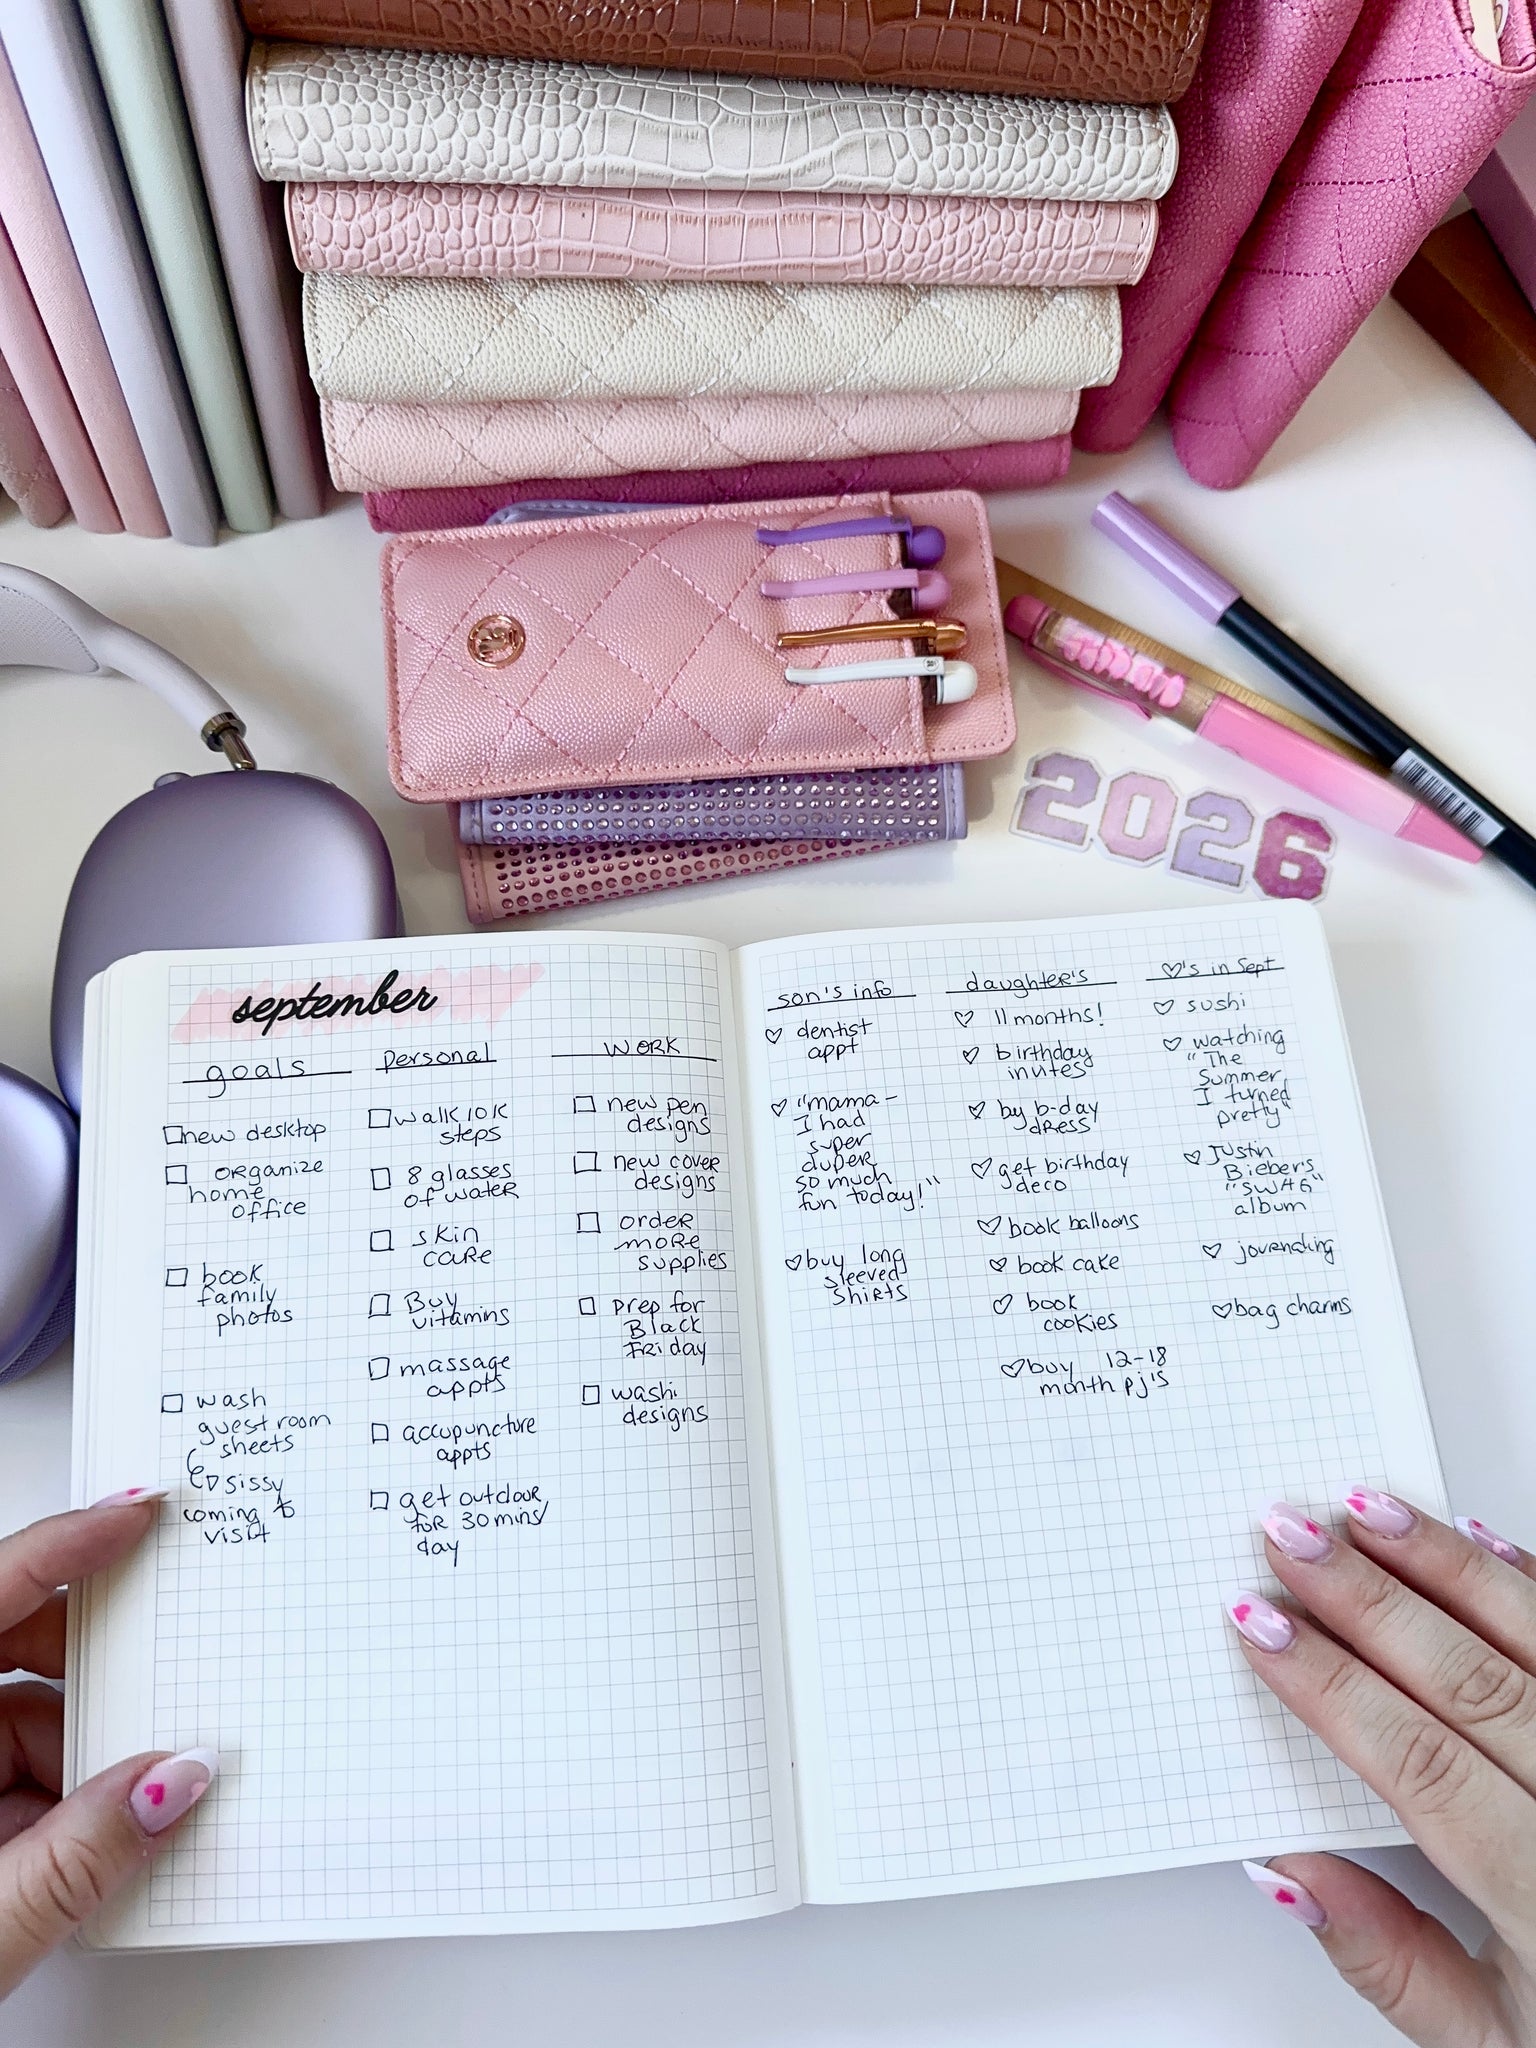 2026
september
goals
new desktop
organize
home
office
book
family
photos
wash
guest room
sheets
sissy
coming to
visit
personal
walk 10k
steps
8 glasses
of water
skin
care
Buy
vitamins
massage
appts
accupuncture
appts
get outdour
for 30 mins/
day
WORK
new pen
designs
new cover
designs
order
more
supplies
prep for
Black
Friday
washi
designs
son's info
dentist
appt
"mama-
I had
super
duper
so much
fun today!"
buy long
sleeved
shirts
daughter's
11 months!
birthday
invites
by b-day
dress
get birthday
deco
book balloons
book cake
book
cookies
buy 12-18
month pj's
♡'s in Sept
sushi
watching
"The
Summer
I turned
pretty"
Justin
Bieber's
"SWAG"
album
journaling
bag charms